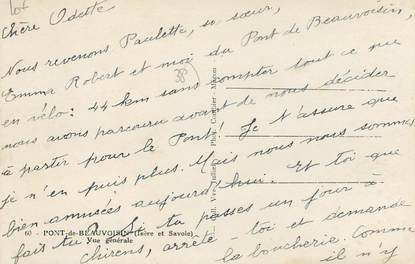 lot
Chère Odette
Nous revenons Paulette, sa sœur,
Emma Robert et moi du Pont de Beauvoisin,
en vélo: 44 km sans compter tout ce que
nous avons parcouru avant de nous décider
à partir pour le Pont. Je t'assure que
je n'en puis plus. Mais nous nous sommes
bien amusées aujourd'hui. Et toi que
fais tu? Si tu passes un jour à
chirens, arrête toi et demande
la boucherie. Comme
il n'y
38
60 - PONT-de-BEAUVOISIN (Isère et Savoie)
Vue générale